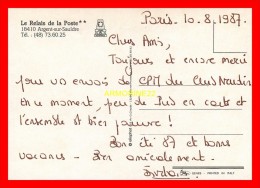 Le Relais de la Poste**
18410 Argent-sur-Sauldre
Tél. : (48) 73.60.25
Paris. 10.8.1987.
Chers Amis,
Toujours et encore merci
pour vos envois de CPM du
En ce moment, peu de Pub en carte et
l'ensemble est bien pauvre !
Bon été 87 et bonnes
vacances - Bien amicalement.